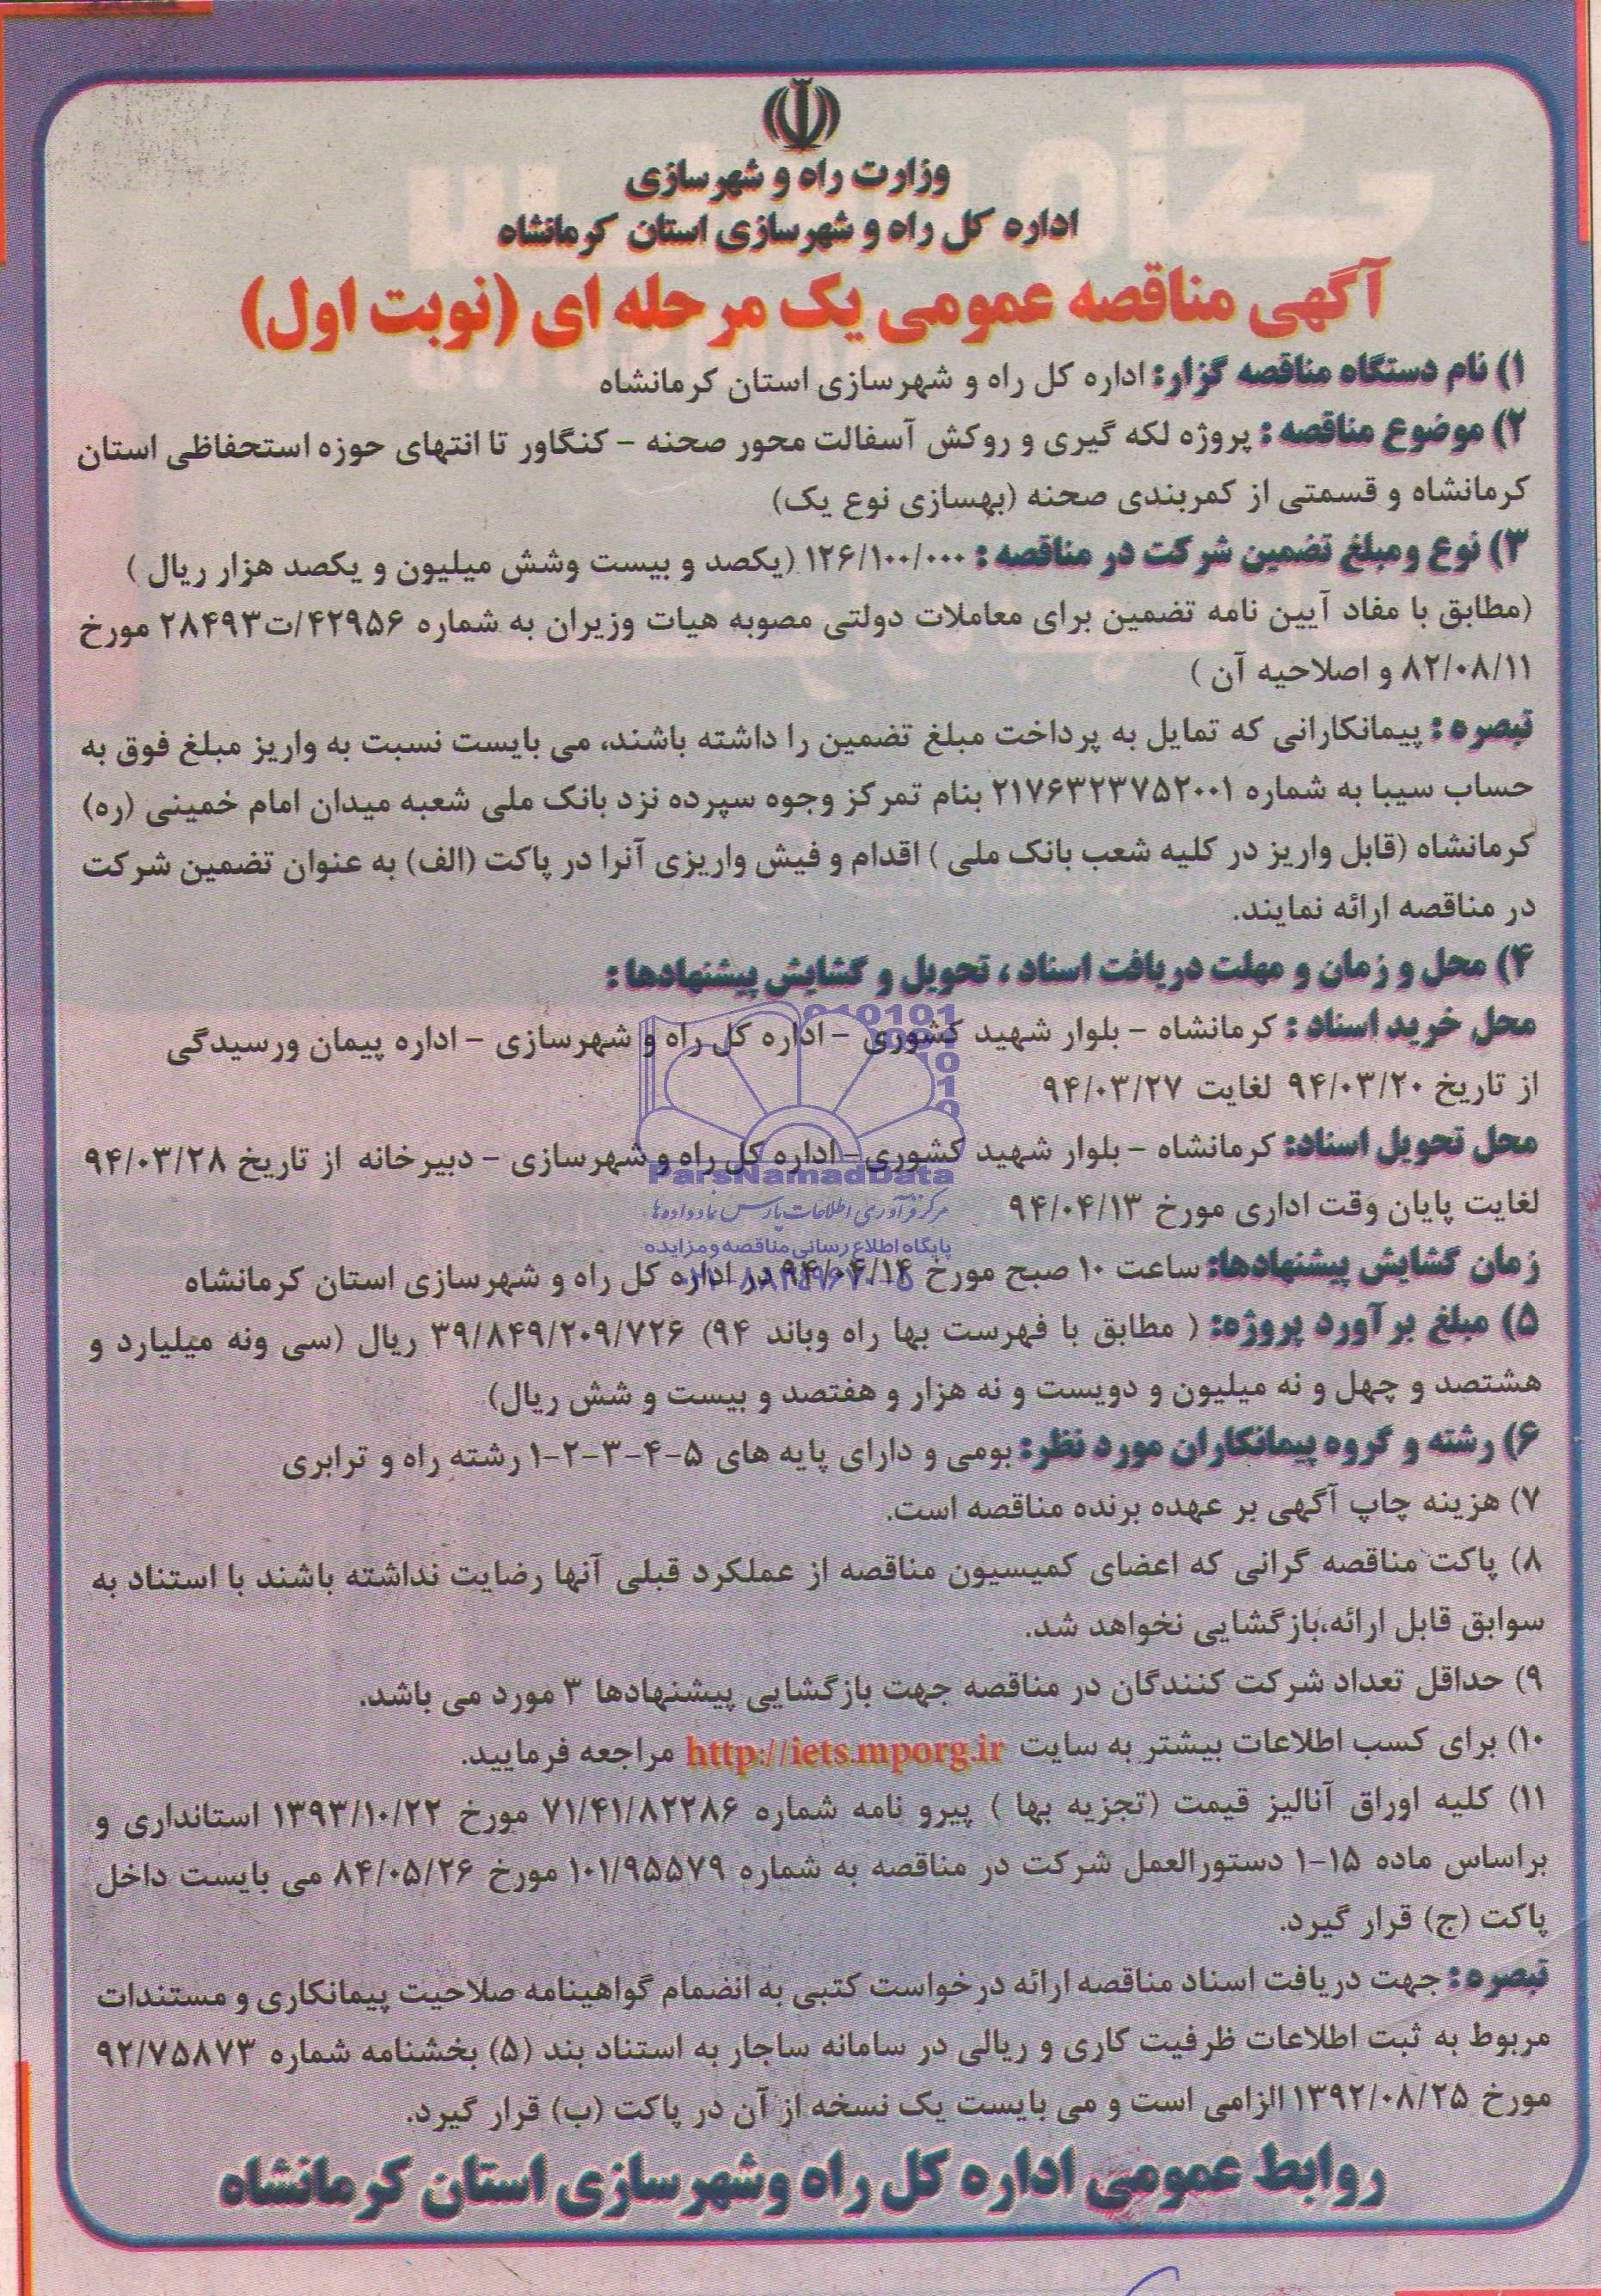 وزارت راه و شهرسازی
اداره کل راه و شهرسازی استان کرمانشاه
آگهی مناقصه عمومی یک مرحله ای (نوبت اول)
۱) نام دستگاه مناقصه گزار: اداره کل راه و شهرسازی استان کرمانشاه
۲) موضوع مناقصه : پروژه لکه گیری و روکش آسفالت محور صحنه - کنگاور تا انتهای حوزه استحفاظی استان
کرمانشاه و قسمتی از کمربندی صحنه (بهسازی نوع یک)
۳) نوع ومبلغ تضمین شرکت در مناقصه : ۱۲۶/۱۰۰/۰۰۰ (یکصد و بیست وشش میلیون و یکصد هزار ریال )
(مطابق با مفاد آیین نامه تضمین برای معاملات دولتی مصوبه هیات وزیران به شماره ۴۲۹۵۶/ت۲۸۴۹۳ مورخ
۸۲/۰۸/۱۱ و اصلاحیه آن )
تبصره : پیمانکارانی که تمایل به پرداخت مبلغ تضمین را داشته باشند، می بایست نسبت به واریز مبلغ فوق به
حساب سیبا به شماره ۲۱۷۶۳۲۳۷۵۲۰۰۱ بنام تمرکز وجوه سپرده نزد بانک ملی شعبه میدان امام خمینی (ره)
کرمانشاه (قابل واریز در کلیه شعب بانک ملی ) اقدام و فیش واریزی آنرا در پاکت (الف) به عنوان تضمین شرکت
در مناقصه ارائه نمایند.
۴) محل و زمان و مهلت دریافت اسناد ، تحویل و گشایش پیشنهادها :
محل خرید اسناد : کرمانشاه - بلوار شهید کشوری - اداره کل راه و شهرسازی - اداره پیمان ورسیدگی
از تاریخ ۹۴/۰۳/۲۰ لغایت ۹۴/۰۳/۲۷
محل تحویل اسناد: کرمانشاه - بلوار شهید کشوری-اداره کل راه و شهرسازی - دبیرخانه از تاریخ ۹۴/۰۳/۲۸
ParsNamadData
لغایت پایان وقت اداری مورخ ۹۴/۰۴/۱۳
مرکز فرآوری اطلاعات پارس نماد داده ها
پایگاه اطلاع رسانی مناقصه و مزایده
زمان گشایش پیشنهادها: ساعت ۱۰ صبح مورخ ۹۴/۰۴/۱۴ در اداره کل راه و شهرسازی استان کرمانشاه
۵) مبلغ برآورد پروژه: ( مطابق با فهرست بها راه وباند ۹۴) ۳۹/۸۴۹/۲۰۹/۷۲۶ ریال (سی ونه میلیارد و
هشتصد و چهل و نه میلیون و دویست و نه هزار و هفتصد و بیست و شش ریال)
۶) رشته و گروه پیمانکاران مورد نظر: بومی و دارای پایه های ۵-۴-۳-۲-۱ رشته راه و ترابری
۷) هزینه چاپ آگهی بر عهده برنده مناقصه است.
۸) پاکت مناقصه گرانی که اعضای کمیسیون مناقصه از عملکرد قبلی آنها رضایت نداشته باشند با استناد به
سوابق قابل ارائه،بازگشایی نخواهد شد.
۹) حداقل تعداد شرکت کنندگان در مناقصه جهت بازگشایی پیشنهادها ۳ مورد می باشد.
۱۰) برای کسب اطلاعات بیشتر به سایت http://iets.mporg.ir مراجعه فرمایید.
۱۱) کلیه اوراق آنالیز قیمت (تجزیه بها ) پیرو نامه شماره ۷۱/۴۱/۸۲۲۸۶ مورخ ۱۳۹۳/۱۰/۲۲ استانداری و
براساس ماده ۱۵-۱ دستورالعمل شرکت در مناقصه به شماره ۱۰۱/۹۵۵۷۹ مورخ ۸۴/۰۵/۲۶ می بایست داخل
پاکت (ج) قرار گیرد.
تبصره : جهت دریافت اسناد مناقصه ارائه درخواست کتبی به انضمام گواهینامه صلاحیت پیمانکاری و مستندات
مربوط به ثبت اطلاعات ظرفیت کاری و ریالی در سامانه ساجار به استناد بند (۵) بخشنامه شماره ۹۲/۷۵۸۷۳
مورخ ۱۳۹۲/۰۸/۲۵ الزامی است و می بایست یک نسخه از آن در پاکت (ب) قرار گیرد.
روابط عمومی اداره کل راه وشهرسازی استان کرمانشاه